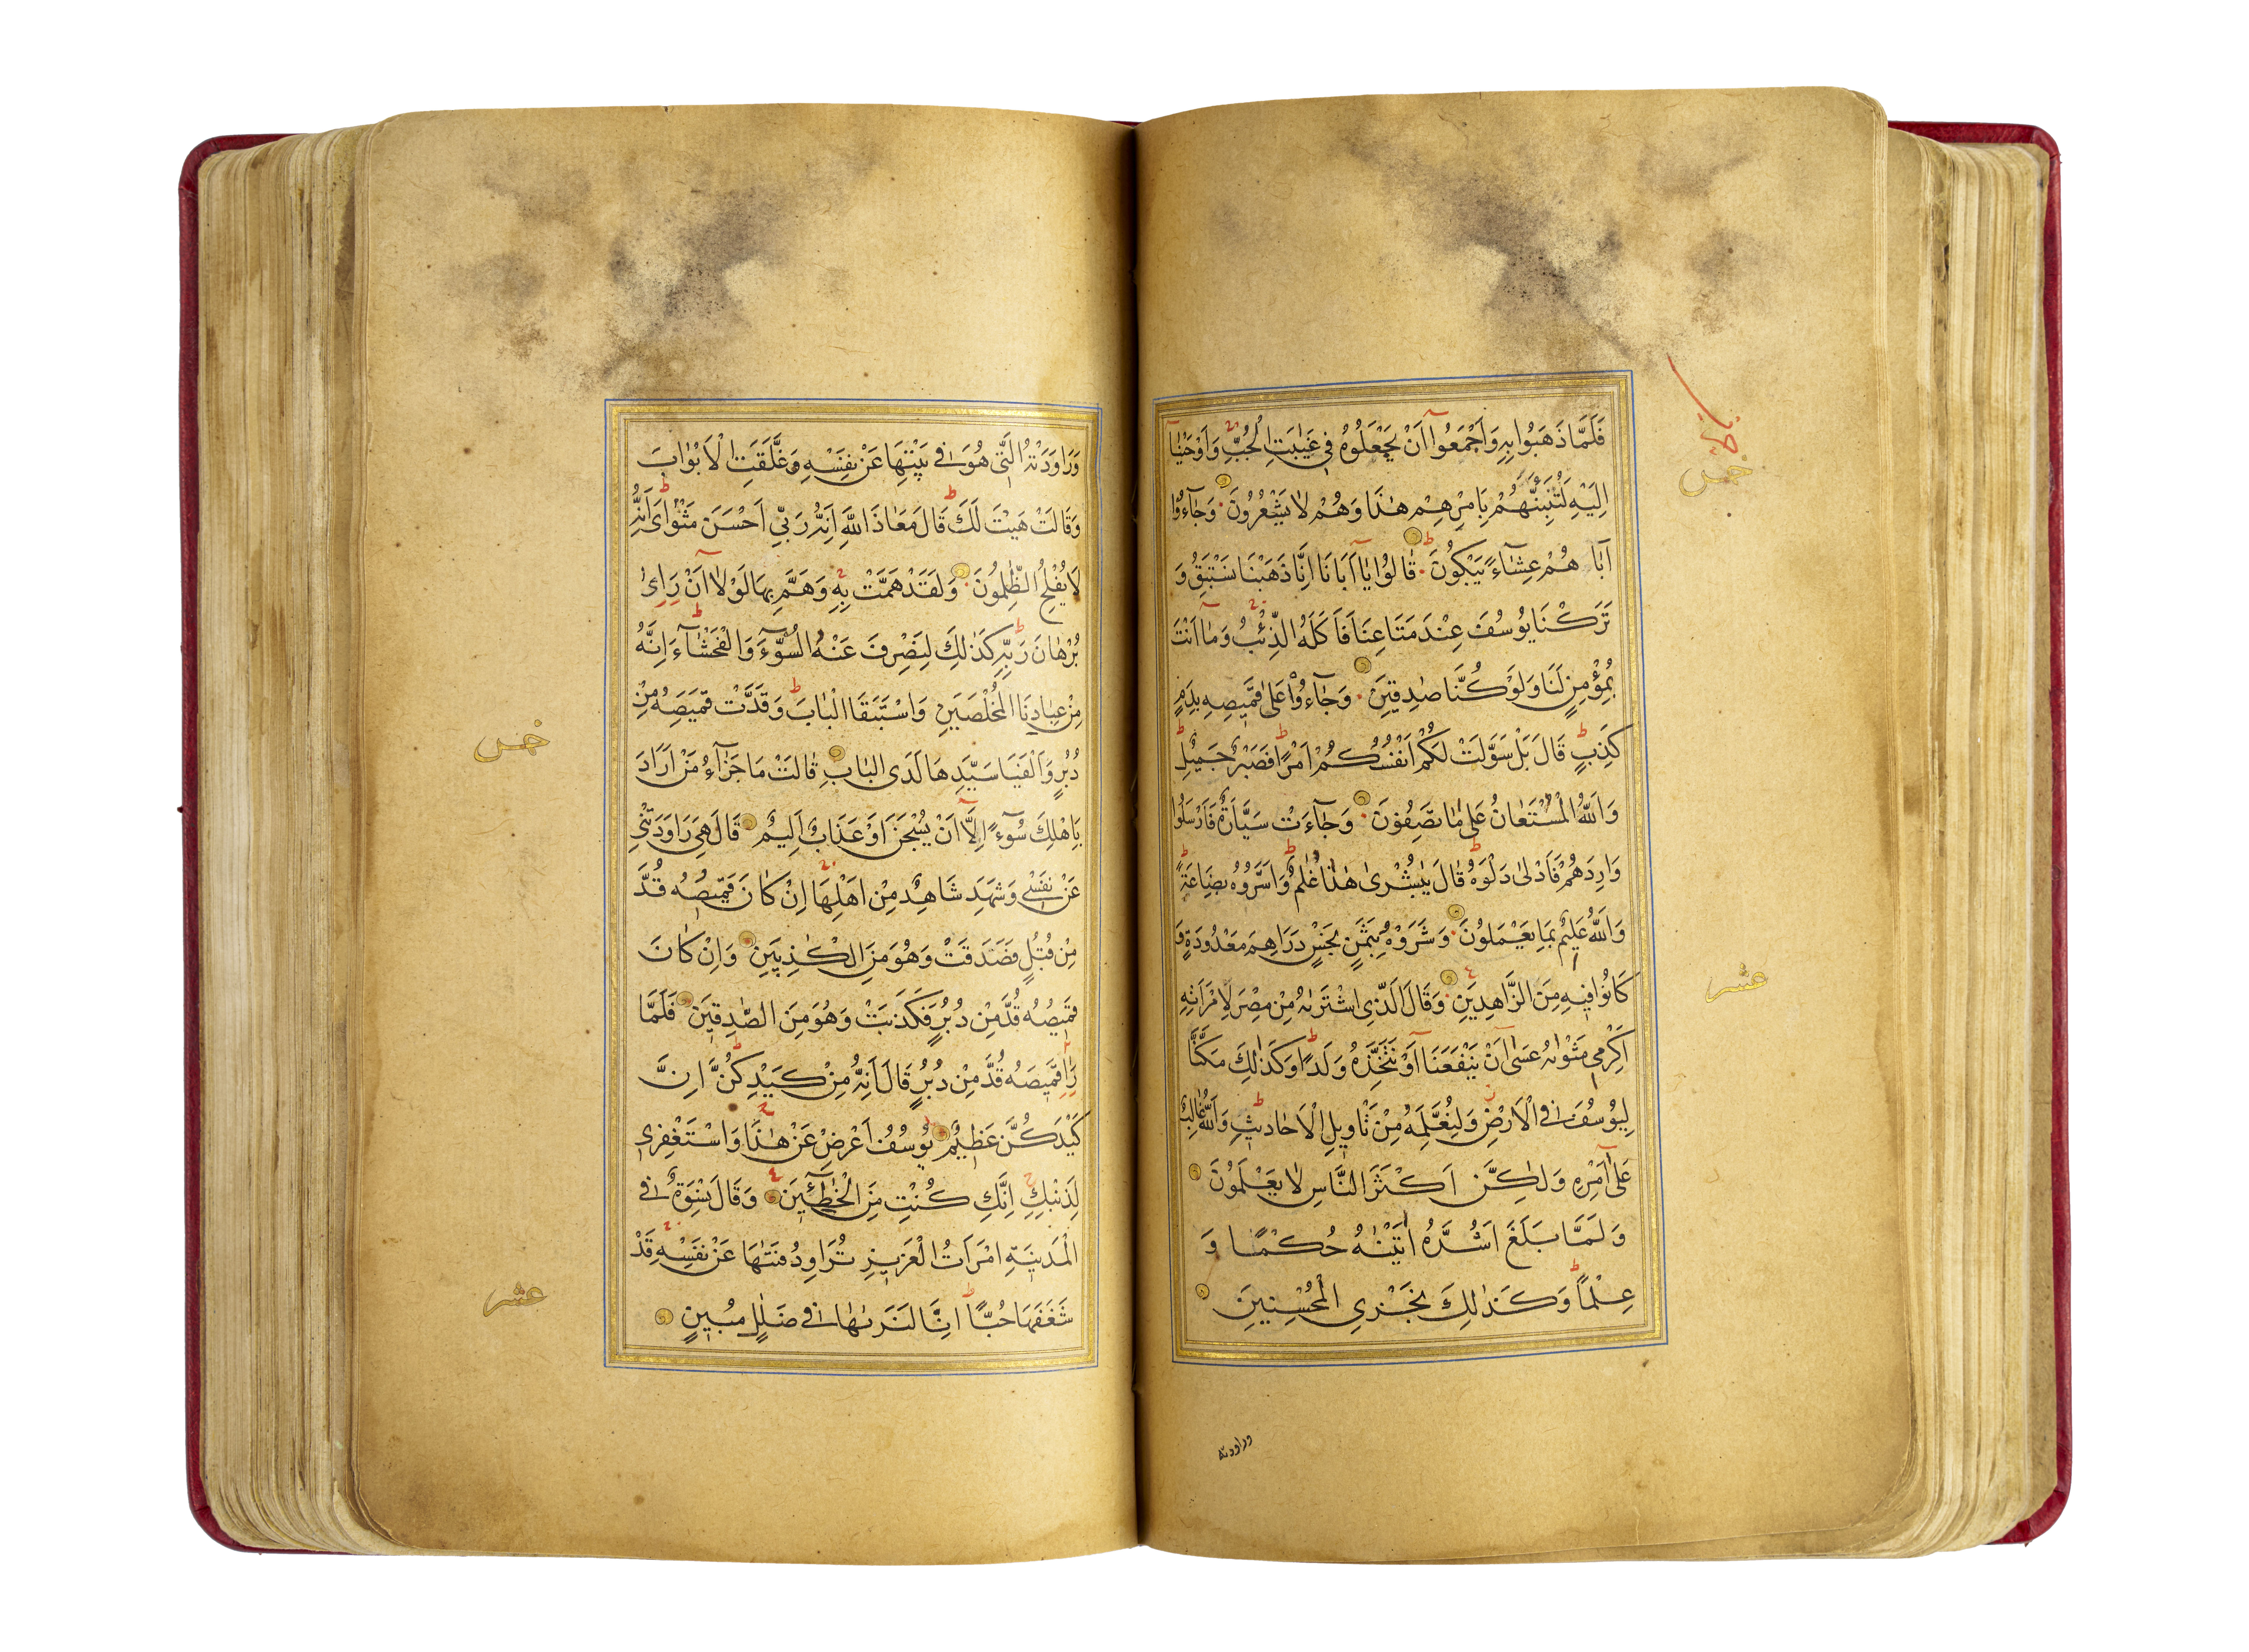 فَلَمَّا ذَهَبُوا بِهِ وَاَجْمَعُوا اَنْ يَجْعَلُوهُ فِي غَيٰبَتِ الْجُبِّ وَاَوْحَيْنٰا
اِلَيْهِ لَتُنَبِّئَنَّهُمْ بِاَمْرِهِمْ هٰذَا وَهُمْ لاٰ يَشْعُرُونَ وَجٰٓاءُوٓا
اَبٰا هُمْ عِشٰٓاءً يَبْكُونَ قٰالُوا يٰٓا اَبَانَا اِنَّا ذَهَبْنَا نَسْتَبِقُ وَ
تَرَكْنَا يُوسُفَ عِنْدَ مَتَاعِنَا فَاَكَلَهُ الذِّئْبُ وَمٰا اَنْتَ
بِمُؤْمِنٍ لَنَا وَلَوْ كُنَّا صٰدِقِينَ وَجٰٓاءُو عَلٰى قَمِيصِهِ بِدَمٍ
كَذِبٍ قَالَ بَلْ سَوَّلَتْ لَكُمْ اَنْفُسُكُمْ اَمْرًا فَصَبْرٌ جَمِيلٌ
وَاللهُ الْمُسْتَعٰانُ عَلٰى مٰا تَصِفُونَ وَجٰٓاءَتْ سَيَّارَةٌ فَاَرْسَلُوا
وَارِدَهُمْ فَاَدْلٰى دَلْوَهُ قَالَ يٰبُشْرٰى هٰذَا غُلٰمٌ وَاَسَرُّوهُ بِضَاعَةً
وَاللهُ عَلِيمٌ بِمَا يَعْمَلُونَ وَشَرَوْهُ بِثَمَنٍ بَخْسٍ دَرَاهِمَ مَعْدُودَةٍ وَ
كَانُوا فِيهِ مِنَ الزَّاهِدِينَ وَقَالَ الَّذِي اشْتَرٰيهُ مِنْ مِصْرَ لِامْرَاَتِهِ
اَكْرِمِي مَثْوٰيهُ عَسٰى اَنْ يَنْفَعَنَا اَوْ نَتَّخِذَهُ وَلَدًا وَكَذٰلِكَ مَكَّنَّا
لِيُوسُفَ فِي الْاَرْضِ وَلِنُعَلِّمَهُ مِنْ تَاْوِيلِ الْاَحَادِيثِ وَاللهُ غَالِبٌ
عَلٰٓى اَمْرِهِ وَلٰكِنَّ اَكْثَرَ النَّاسِ لاٰ يَعْلَمُونَ
وَلَمَّا بَلَغَ اَشُدَّهُ اٰتَيْنٰهُ حُكْمًا وَ
عِلْمًا وَكَذٰلِكَ نَجْزِي الْمُحْسِنِينَ
خمس
عشر
وراودته
وَرَاوَدَتْهُ الَّتِي هُوَ فِي بَيْتِهَا عَنْ نَفْسِهِ وَغَلَّقَتِ الْاَبْوٰابَ
وَقَالَتْ هَيْتَ لَكَ قَالَ مَعَاذَ اللهِ اِنَّهُ رَبِّي اَحْسَنَ مَثْوٰاىَ اِنَّهُ
لَا يُفْلِحُ الظّٰلِمُونَ وَلَقَدْ هَمَّتْ بِهِ وَهَمَّ بِهَا لَوْلٰٓا اَنْ رَاٰى
بُرْهَانَ رَبِّهِ كَذٰلِكَ لِنَصْرِفَ عَنْهُ السُّوٓءَ وَالْفَحْشَٓاءَ اِنَّهُ
مِنْ عِبَادِنَا الْمُخْلَصِينَ وَاسْتَبَقَا الْبٰابَ وَقَدَّتْ قَمِيصَهُ مِنْ
دُبُرٍ وَاَلْفَيَا سَيِّدَهَا لَدَى الْبٰابِ قٰالَتْ مَا جَزَٓاءُ مَنْ اَرَادَ
بِاَهْلِكَ سُوٓءًا اِلَّٓا اَنْ يُسْجَنَ اَوْ عَذَابٌ اَلِيمٌ قَالَ هِيَ رَاوَدَتْنِي
عَنْ نَفْسِي وَشَهِدَ شَاهِدٌ مِنْ اَهْلِهَا اِنْ كَانَ قَمِيصُهُ قُدَّ
مِنْ قُبُلٍ فَصَدَقَتْ وَهُوَ مِنَ الْكٰذِبِينَ وَاِنْ كَانَ
قَمِيصُهُ قُدَّ مِنْ دُبُرٍ فَكَذَبَتْ وَهُوَ مِنَ الصّٰدِقِينَ فَلَمَّا
رَاٰ قَمِيصَهُ قُدَّ مِنْ دُبُرٍ قَالَ اِنَّهُ مِنْ كَيْدِ كُنَّ اِنَّ
كَيْدَ كُنَّ عَظِيمٌ يُوسُفُ اَعْرِضْ عَنْ هٰذَا وَاسْتَغْفِرِي
لِذَنْبِكِ اِنَّكِ كُنْتِ مِنَ الْخٰاطِئِينَ وَقَالَ نِسْوَةٌ فِي
الْمَدِينَةِ امْرَاَتُ الْعَزِيزِ تُرَاوِدُ فَتٰيهَا عَنْ نَفْسِهِ قَدْ
شَغَفَهَا حُبًّا اِنَّا لَنَرٰيهَا فِي ضَلٰلٍ مُبِينٍ
خمس
عشر